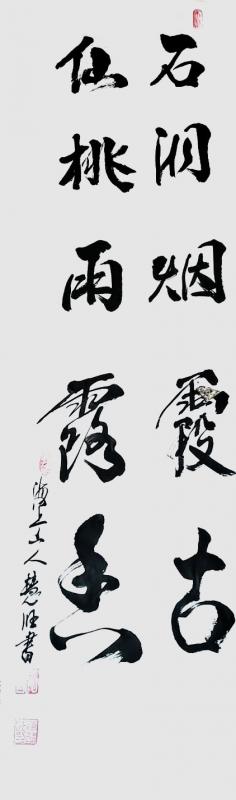 石洞烟霞古
仙桃雨露香
海上山人慧書